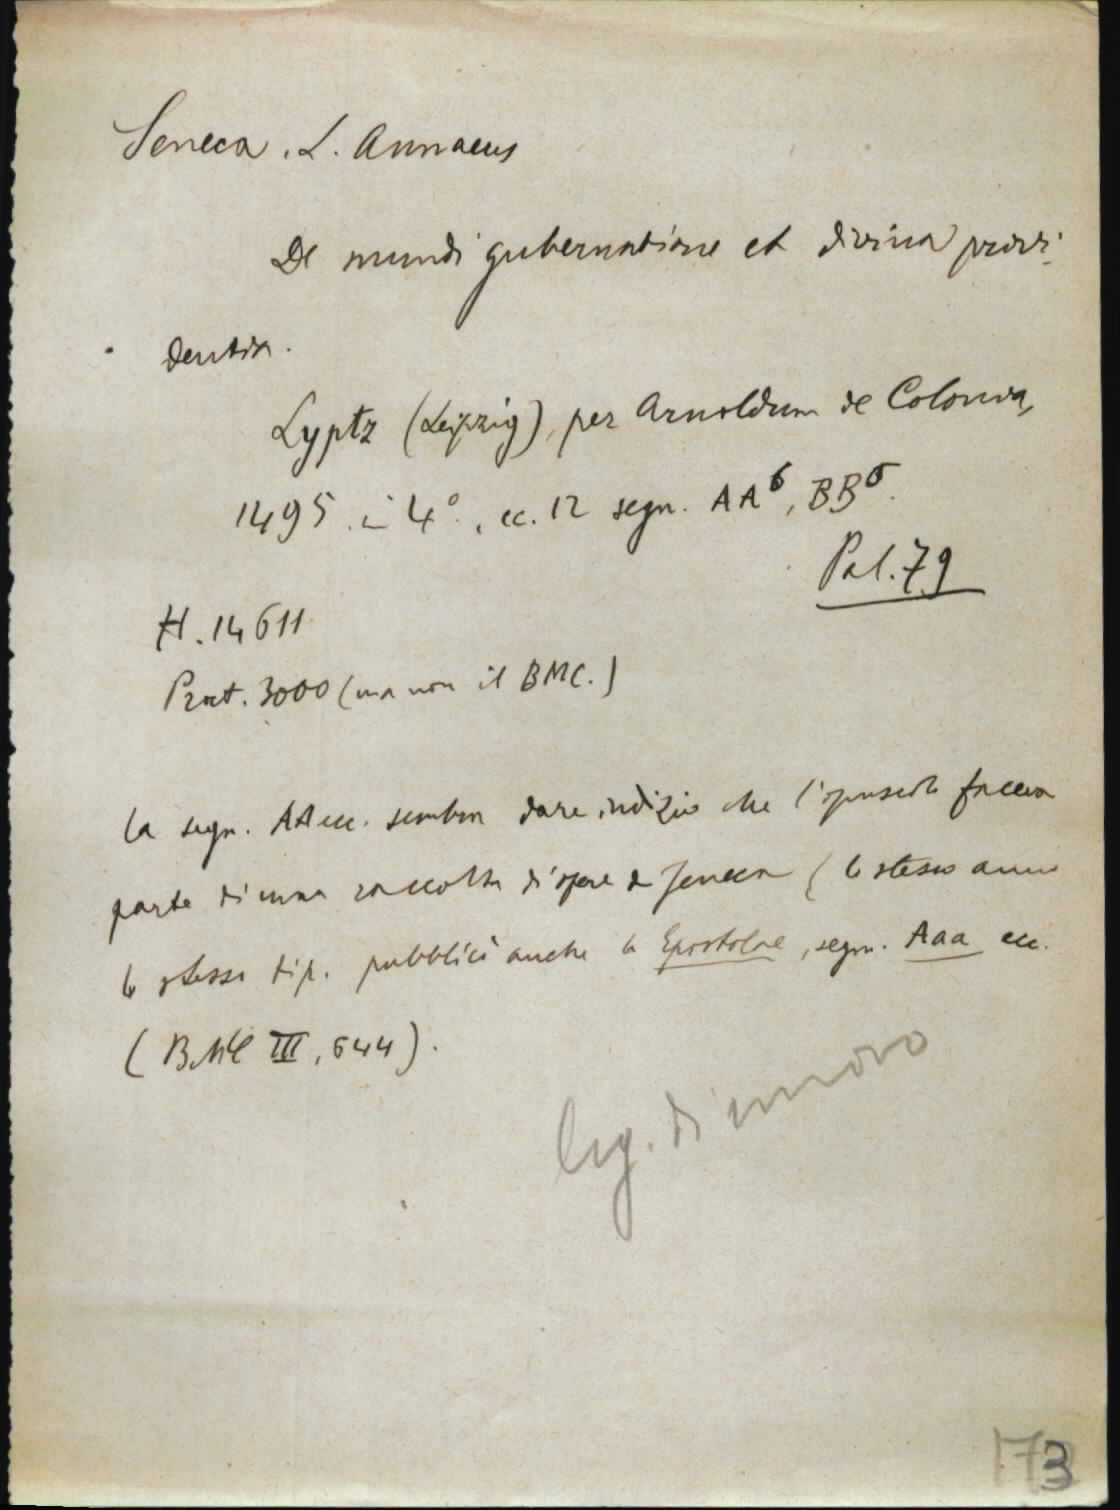 Seneca, L. Annaeus
De mundi gubernatione et divina provi-
dentia.
Lyptz (Leipzig), per Arnoldum de Colonia,
1495. in 4°., cc. 12 segn. AA⁶, BB⁶.
Pal. 79
H. 14611
Proct. 3000 (ma non il BMC.)
La segn. AA ecc. sembra dare indizio che l'opuscolo faccia
parte di una raccolta d'opere di Seneca (lo stesso anno
lo stesso tip. pubblicò anche le Epistolae, segn. Aaa ecc.
(BMC III, 644).
leg. di nuovo
173